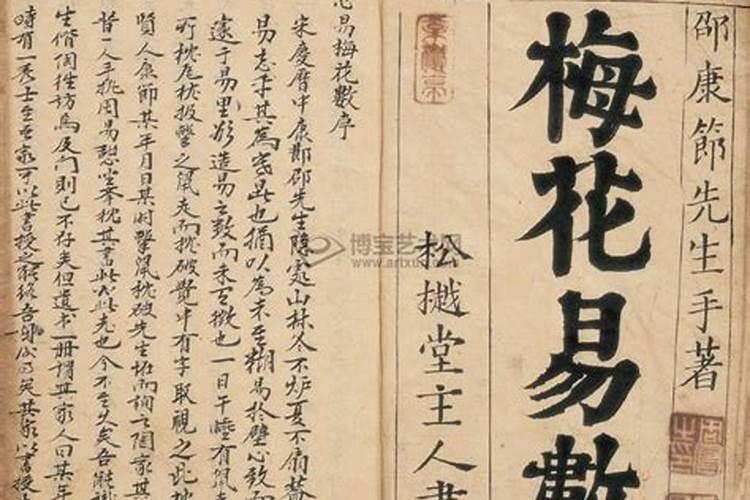 邵康節先生手著
梅花易數
松樾堂主人書
心易梅花數序
宋慶曆中康節邵先生隱處山林冬不炉夏不扇蓋
易志乎其為寒暑也猶以為未至糊易於壁心致而
遂于易里欲造易之數而未百徵也一日午睡有鼠走
所枕瓦枕投擊之鼠走而枕破覺中有字取視之此枕
賢人康節某年月日某时擊鼠枕破先生
昔一人手執周易憩坐举枕其書此必此老也今不至久矣吾能識
生偕個往訪焉及门則已不存矣但遺书一冊謂其家人曰某年
時有一秀士至吾家可以此書授之能終吾身後事矣其家以書授
博宝艺术网
www.artxun.com